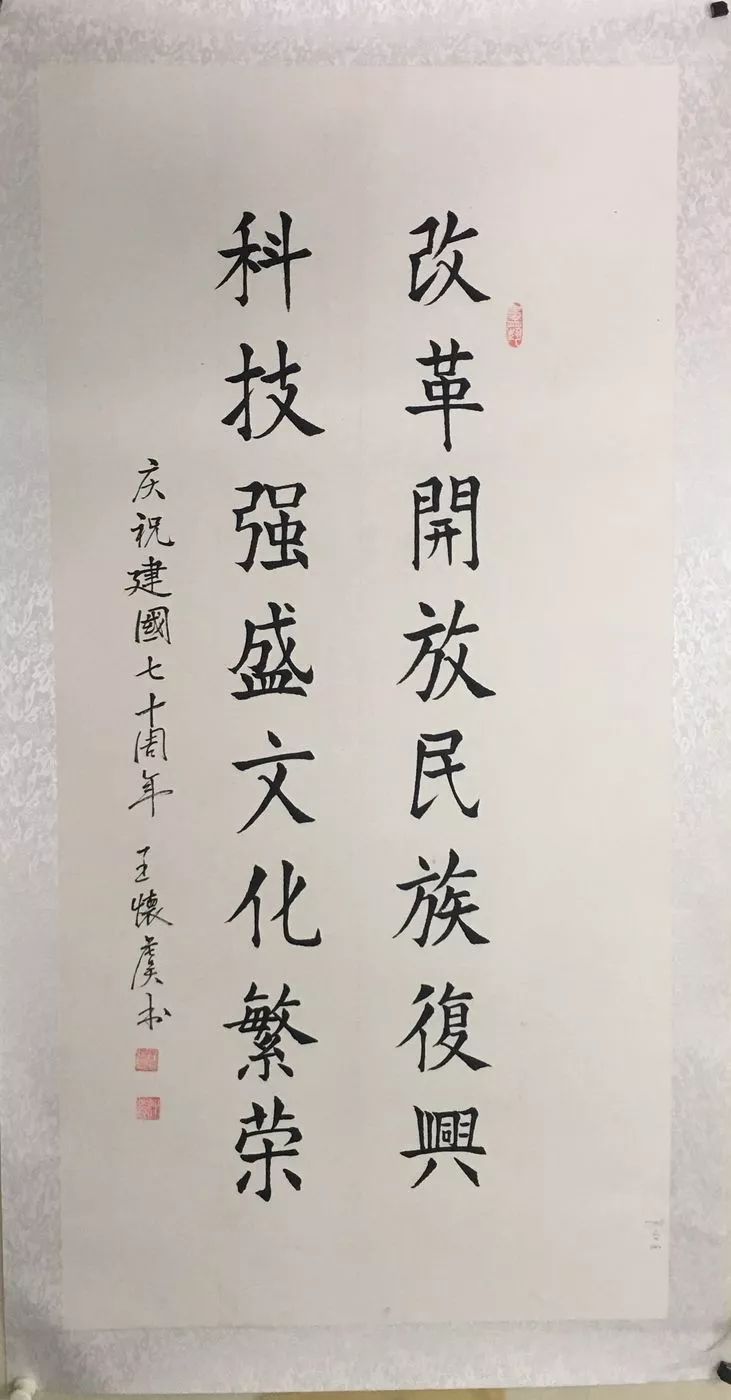 改革開放民族復興
科技强盛文化繁荣
庆祝建國七十周年 王懷虞书